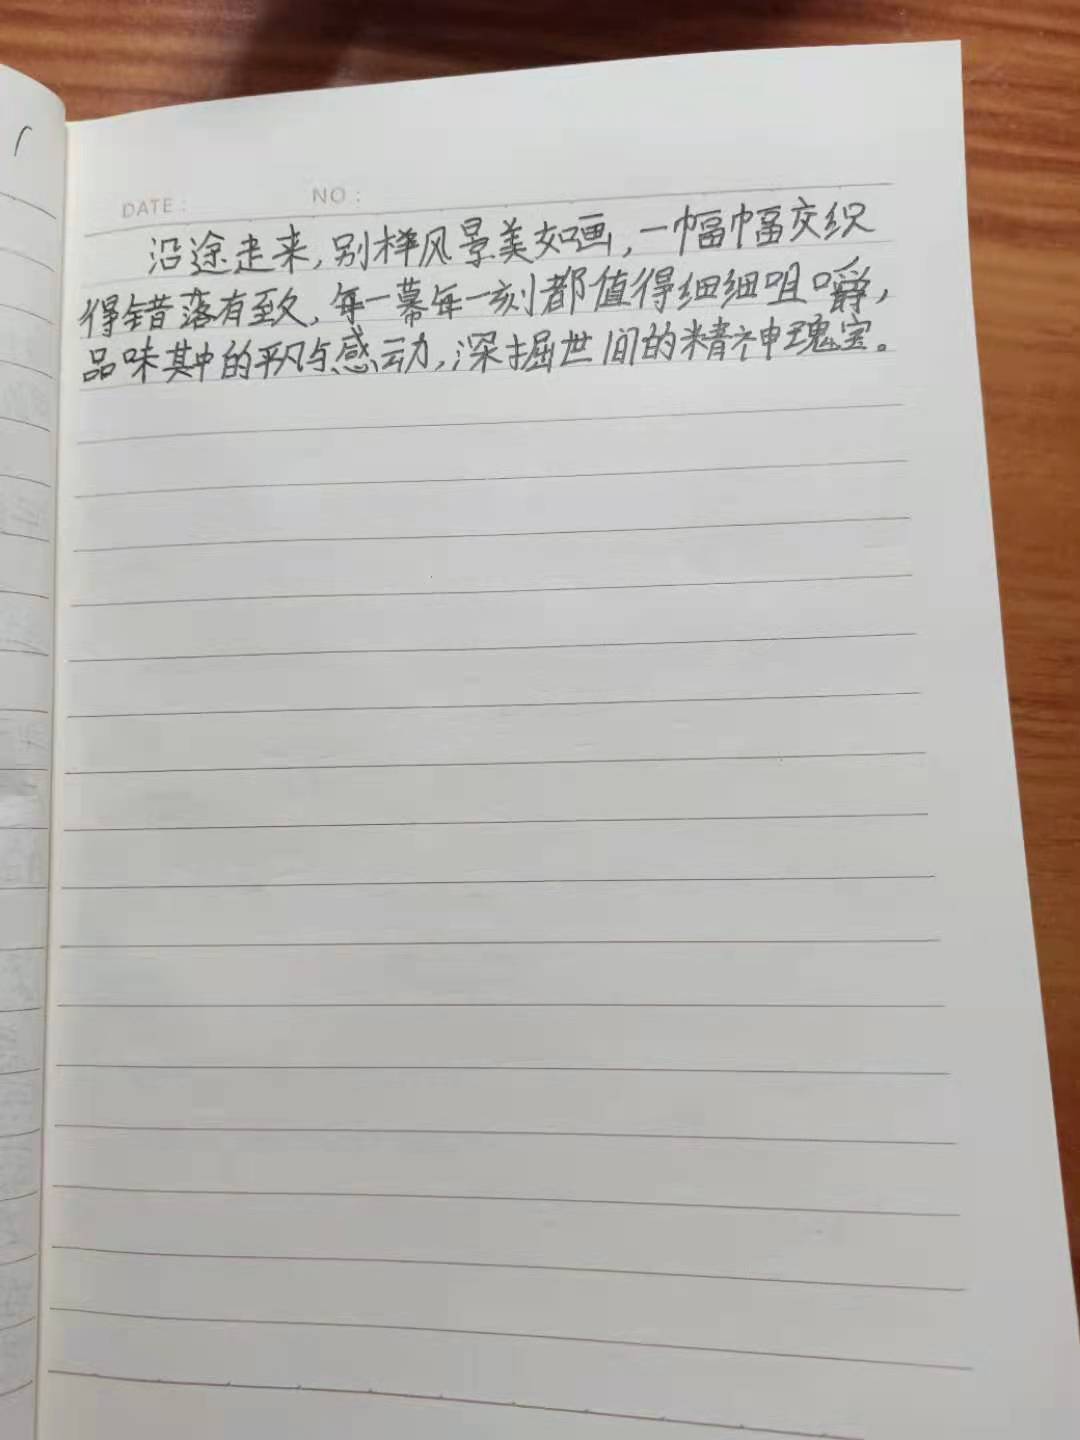 DATE: NO:
沿途走来,别样风景美如画,一幅幅交织
得错落有致,每一幕每一刻都值得细细咀嚼,
品味其中的平凡与感动,深掘世间的精神瑰宝。